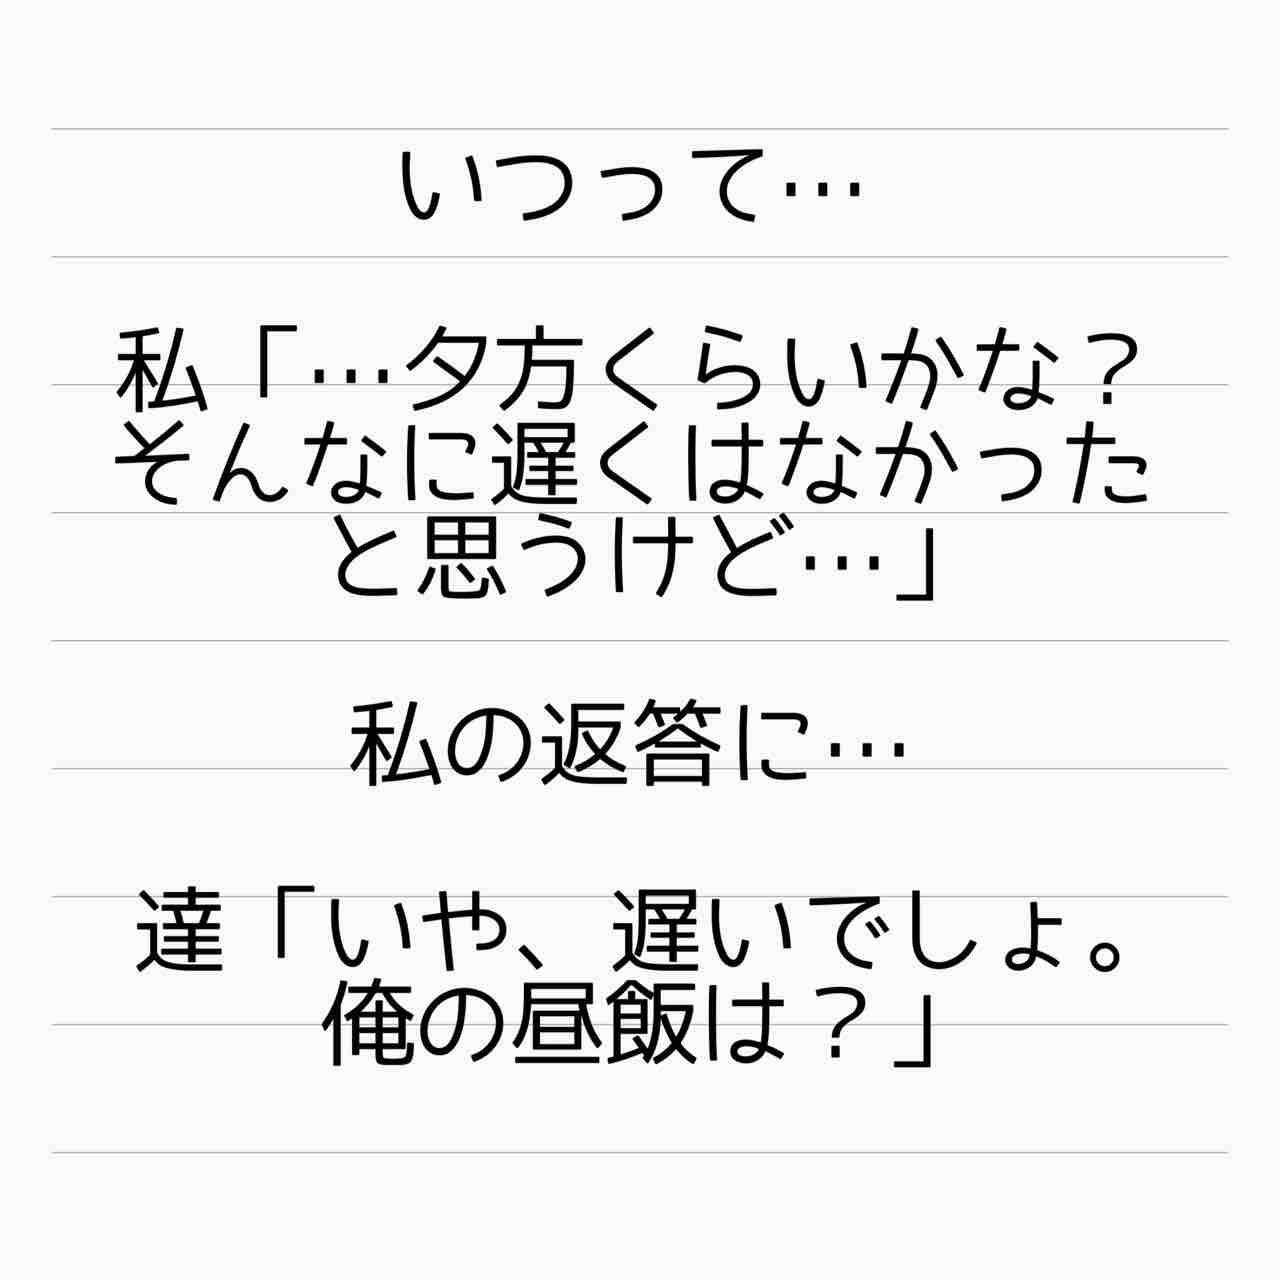 いつって…
私「…夕方くらいかな？
そんなに遅くはなかった
と思うけど…」
私の返答に…
達「いや、遅いでしょ。
俺の昼飯は？」